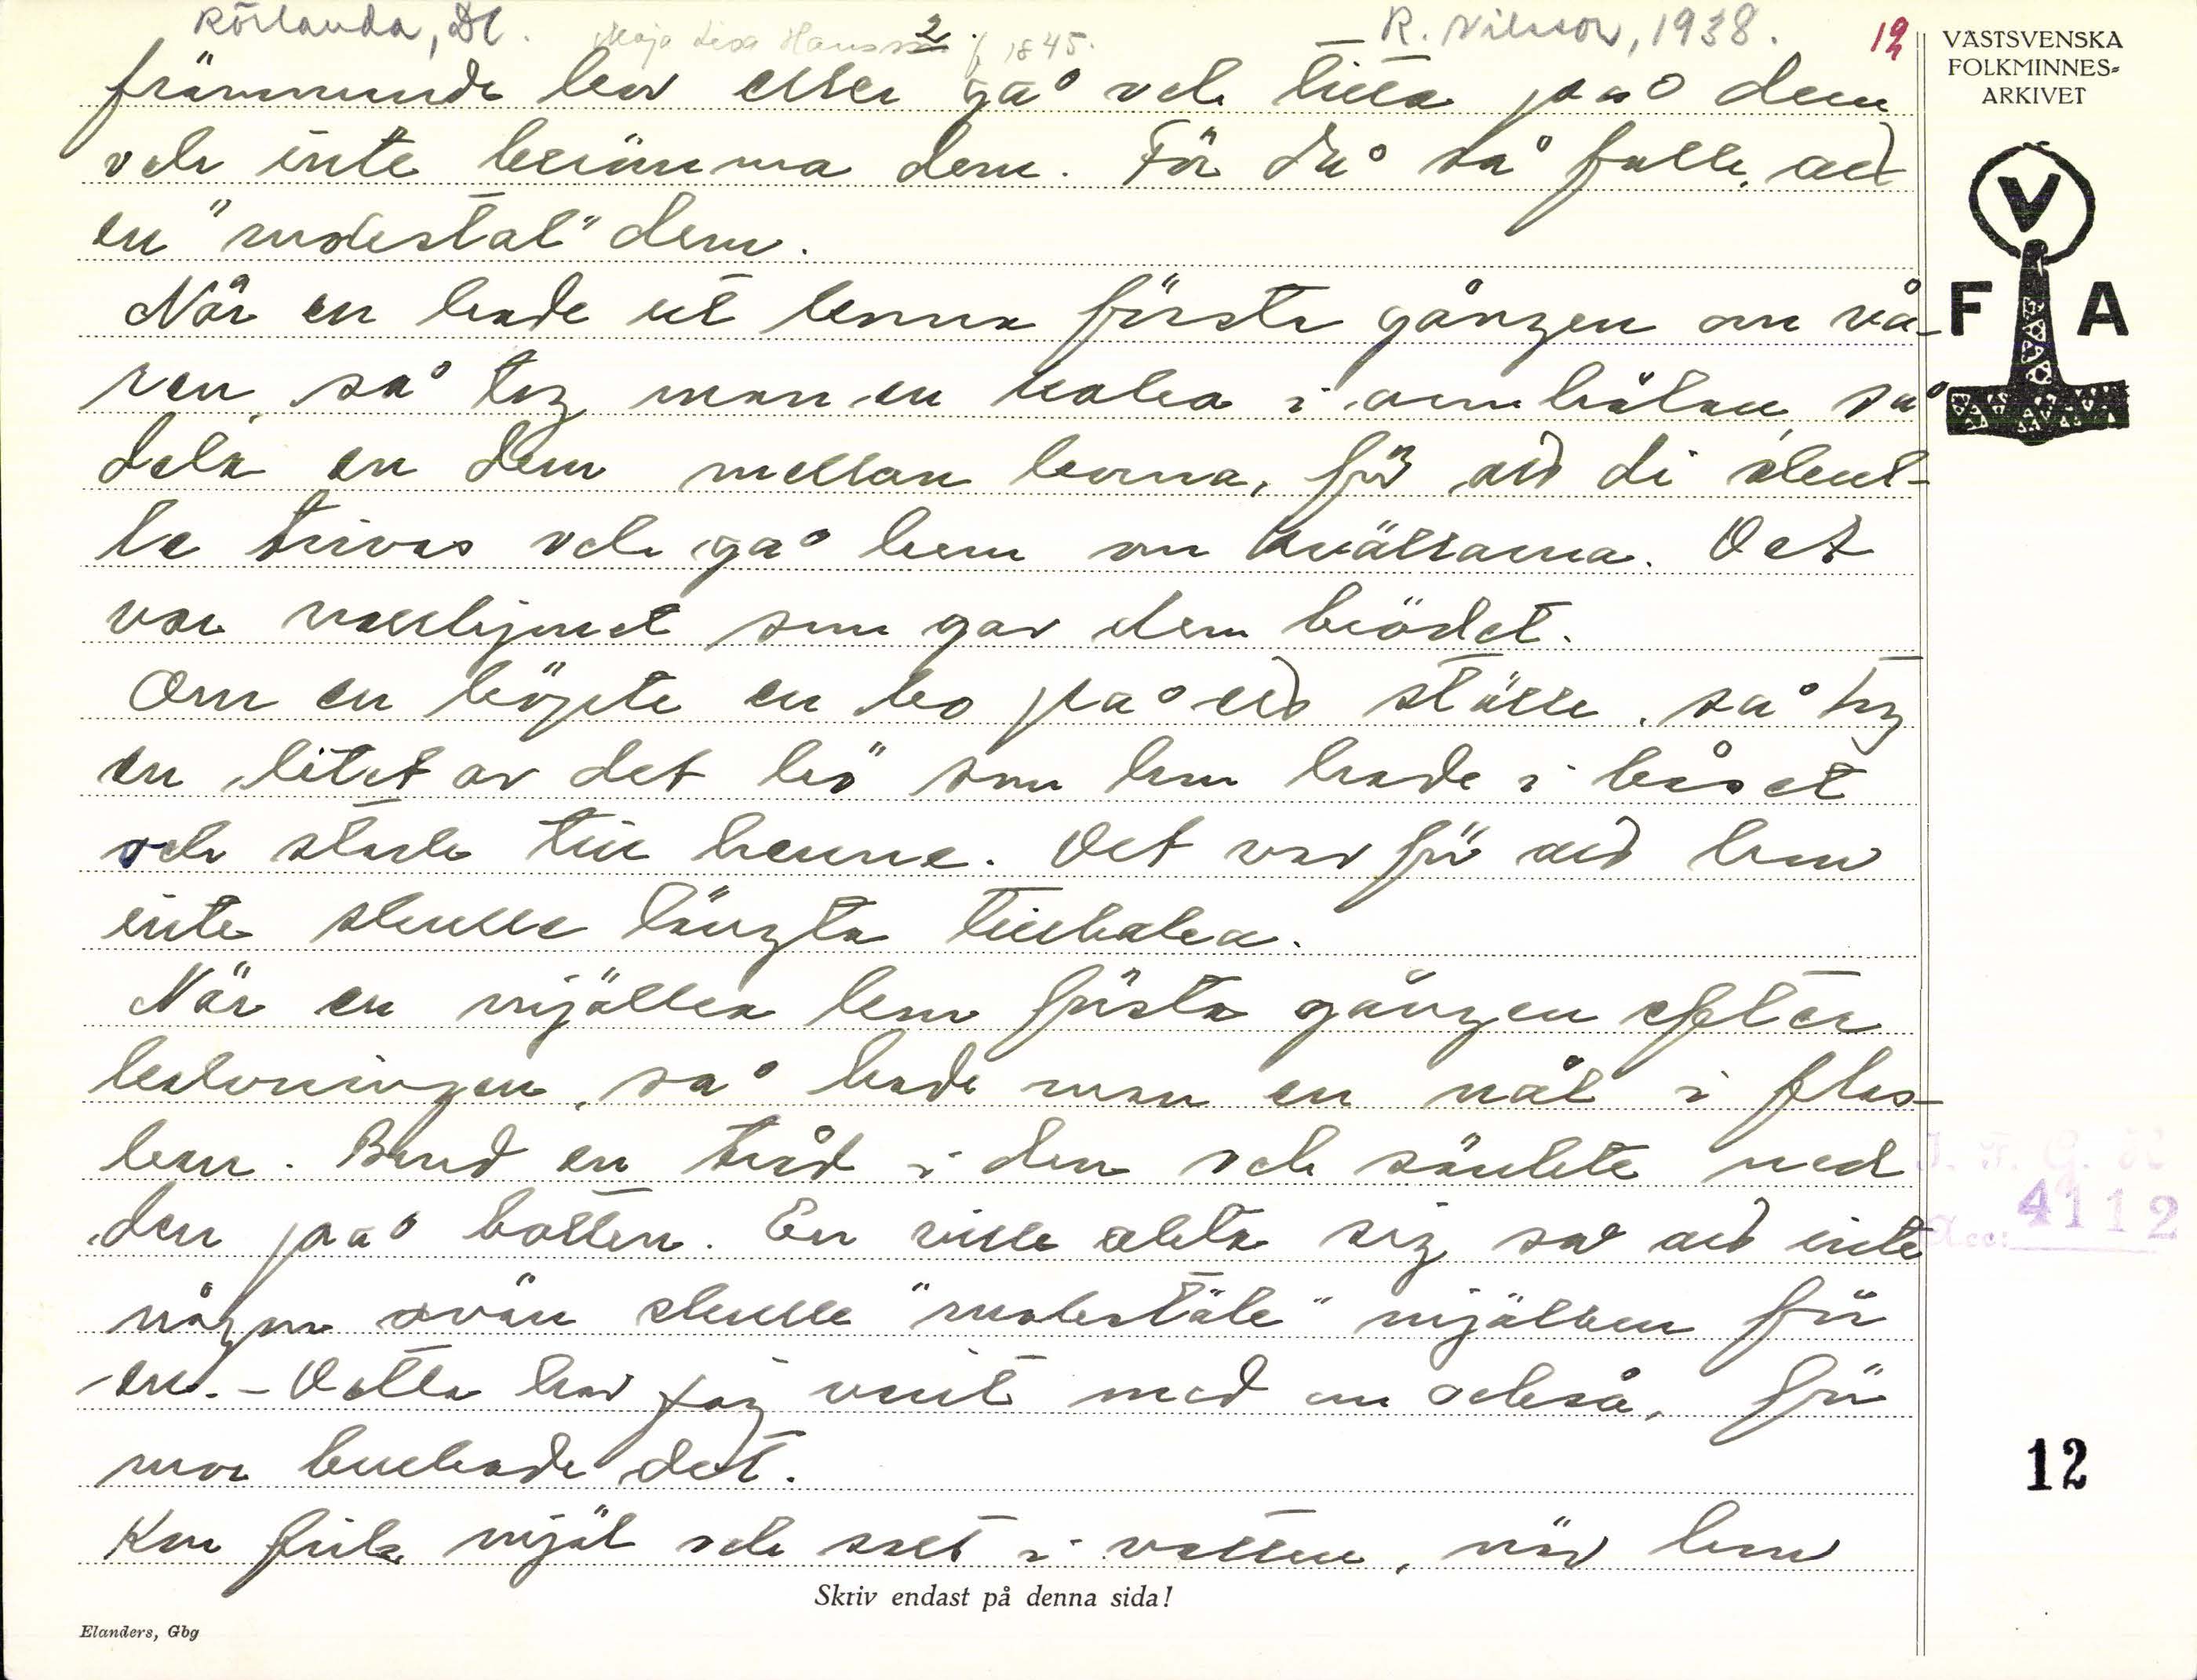 Rölanda, Dl. Maja Lisa Hansson f. 1845. R. Nilsson, 1938. 12
2.
VÄSTSVENSKA
FOLKMINNES-
ARKIVET
främmande kor eller gå och titta på dem
och inte berömma dem. För då så fulle. att
en "modestal" dem.
När en hade ut korna första gången om vå-
ren, så tog man en kaka i armhålan, så
dela en dem mellan korna, för att di skul-
le trivas och gå hem om kvällarna. Det
var vallhjonet som gav dem brödet.
Om en köpte en ko på ett ställe, så tog
en litet av det hö som hon hade i båset
och strök till henne. Det var för att hon
inte skulle längta tillbaka.
När en mjölka kon första gången efter
kalvningen, så hade man en nål i flas-
kan. Band en tråd i den och sänkte ned
den på botten. En ville akta sig så att inte
någon ovän skulle "modestäle" mjölken för
en. – Detta har jag varit med om också, för
mor brukade det.
Kon fick mjöl och salt i vatten, när hon
V
F A
J. F. G. H
Acc: 4112
12
Skriv endast på denna sida!
Elanders, Gbg